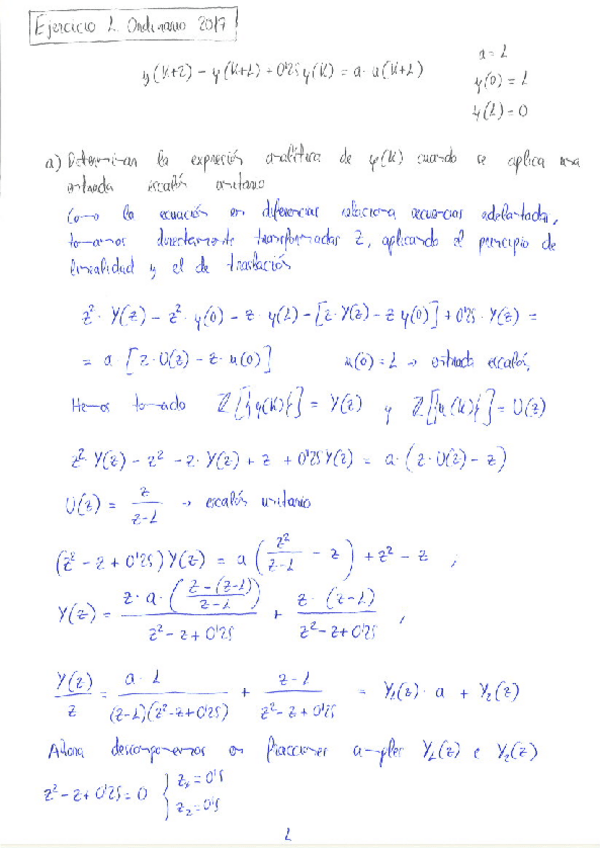 Ejercicio 1 Ordinario 2017
y(k+2) - y(k+1) + 0'25 y(k) = a · u(k+1)
a = 1
y(0) = 1
y(1) = 0
a) Determinar la expresión analítica de y(k) cuando se aplica una
entrada escalón unitario
Como la ecuación en diferencias relaciona secuencias adelantadas,
tomamos directamente transformadas Z, aplicando el principio de
linealidad y el de traslación
z² · Y(z) - z² · y(0) - z · y(1) - [z · Y(z) - z y(0)] + 0'25 · Y(z) =
= a · [z · U(z) - z · u(0)] u(0) = 1 → entrada escalón,
Hemos tomado Z[{y(k)}] = Y(z) y Z[{u(k)}] = U(z)
z² · Y(z) - z² - z · Y(z) + z + 0'25 Y(z) = a · (z · U(z) - z)
U(z) = z / (z-1) → escalón unitario
(z² - z + 0'25) Y(z) = a (z² / (z-1) - z) + z² - z ;
Y(z) = z · a · ((z - (z-1)) / (z-1)) / (z² - z + 0'25) + z · (z-1) / (z² - z + 0'25) ;
Y(z) / z = a · 1 / ((z-1)(z² - z + 0'25)) + (z-1) / (z² - z + 0'25) = Y₁(z) · a + Y₂(z)
Ahora descomponemos en fracciones simples Y₁(z) e Y₂(z)
z² - z + 0'25 = 0 { z₁ = 0'5
z₂ = 0'5
1